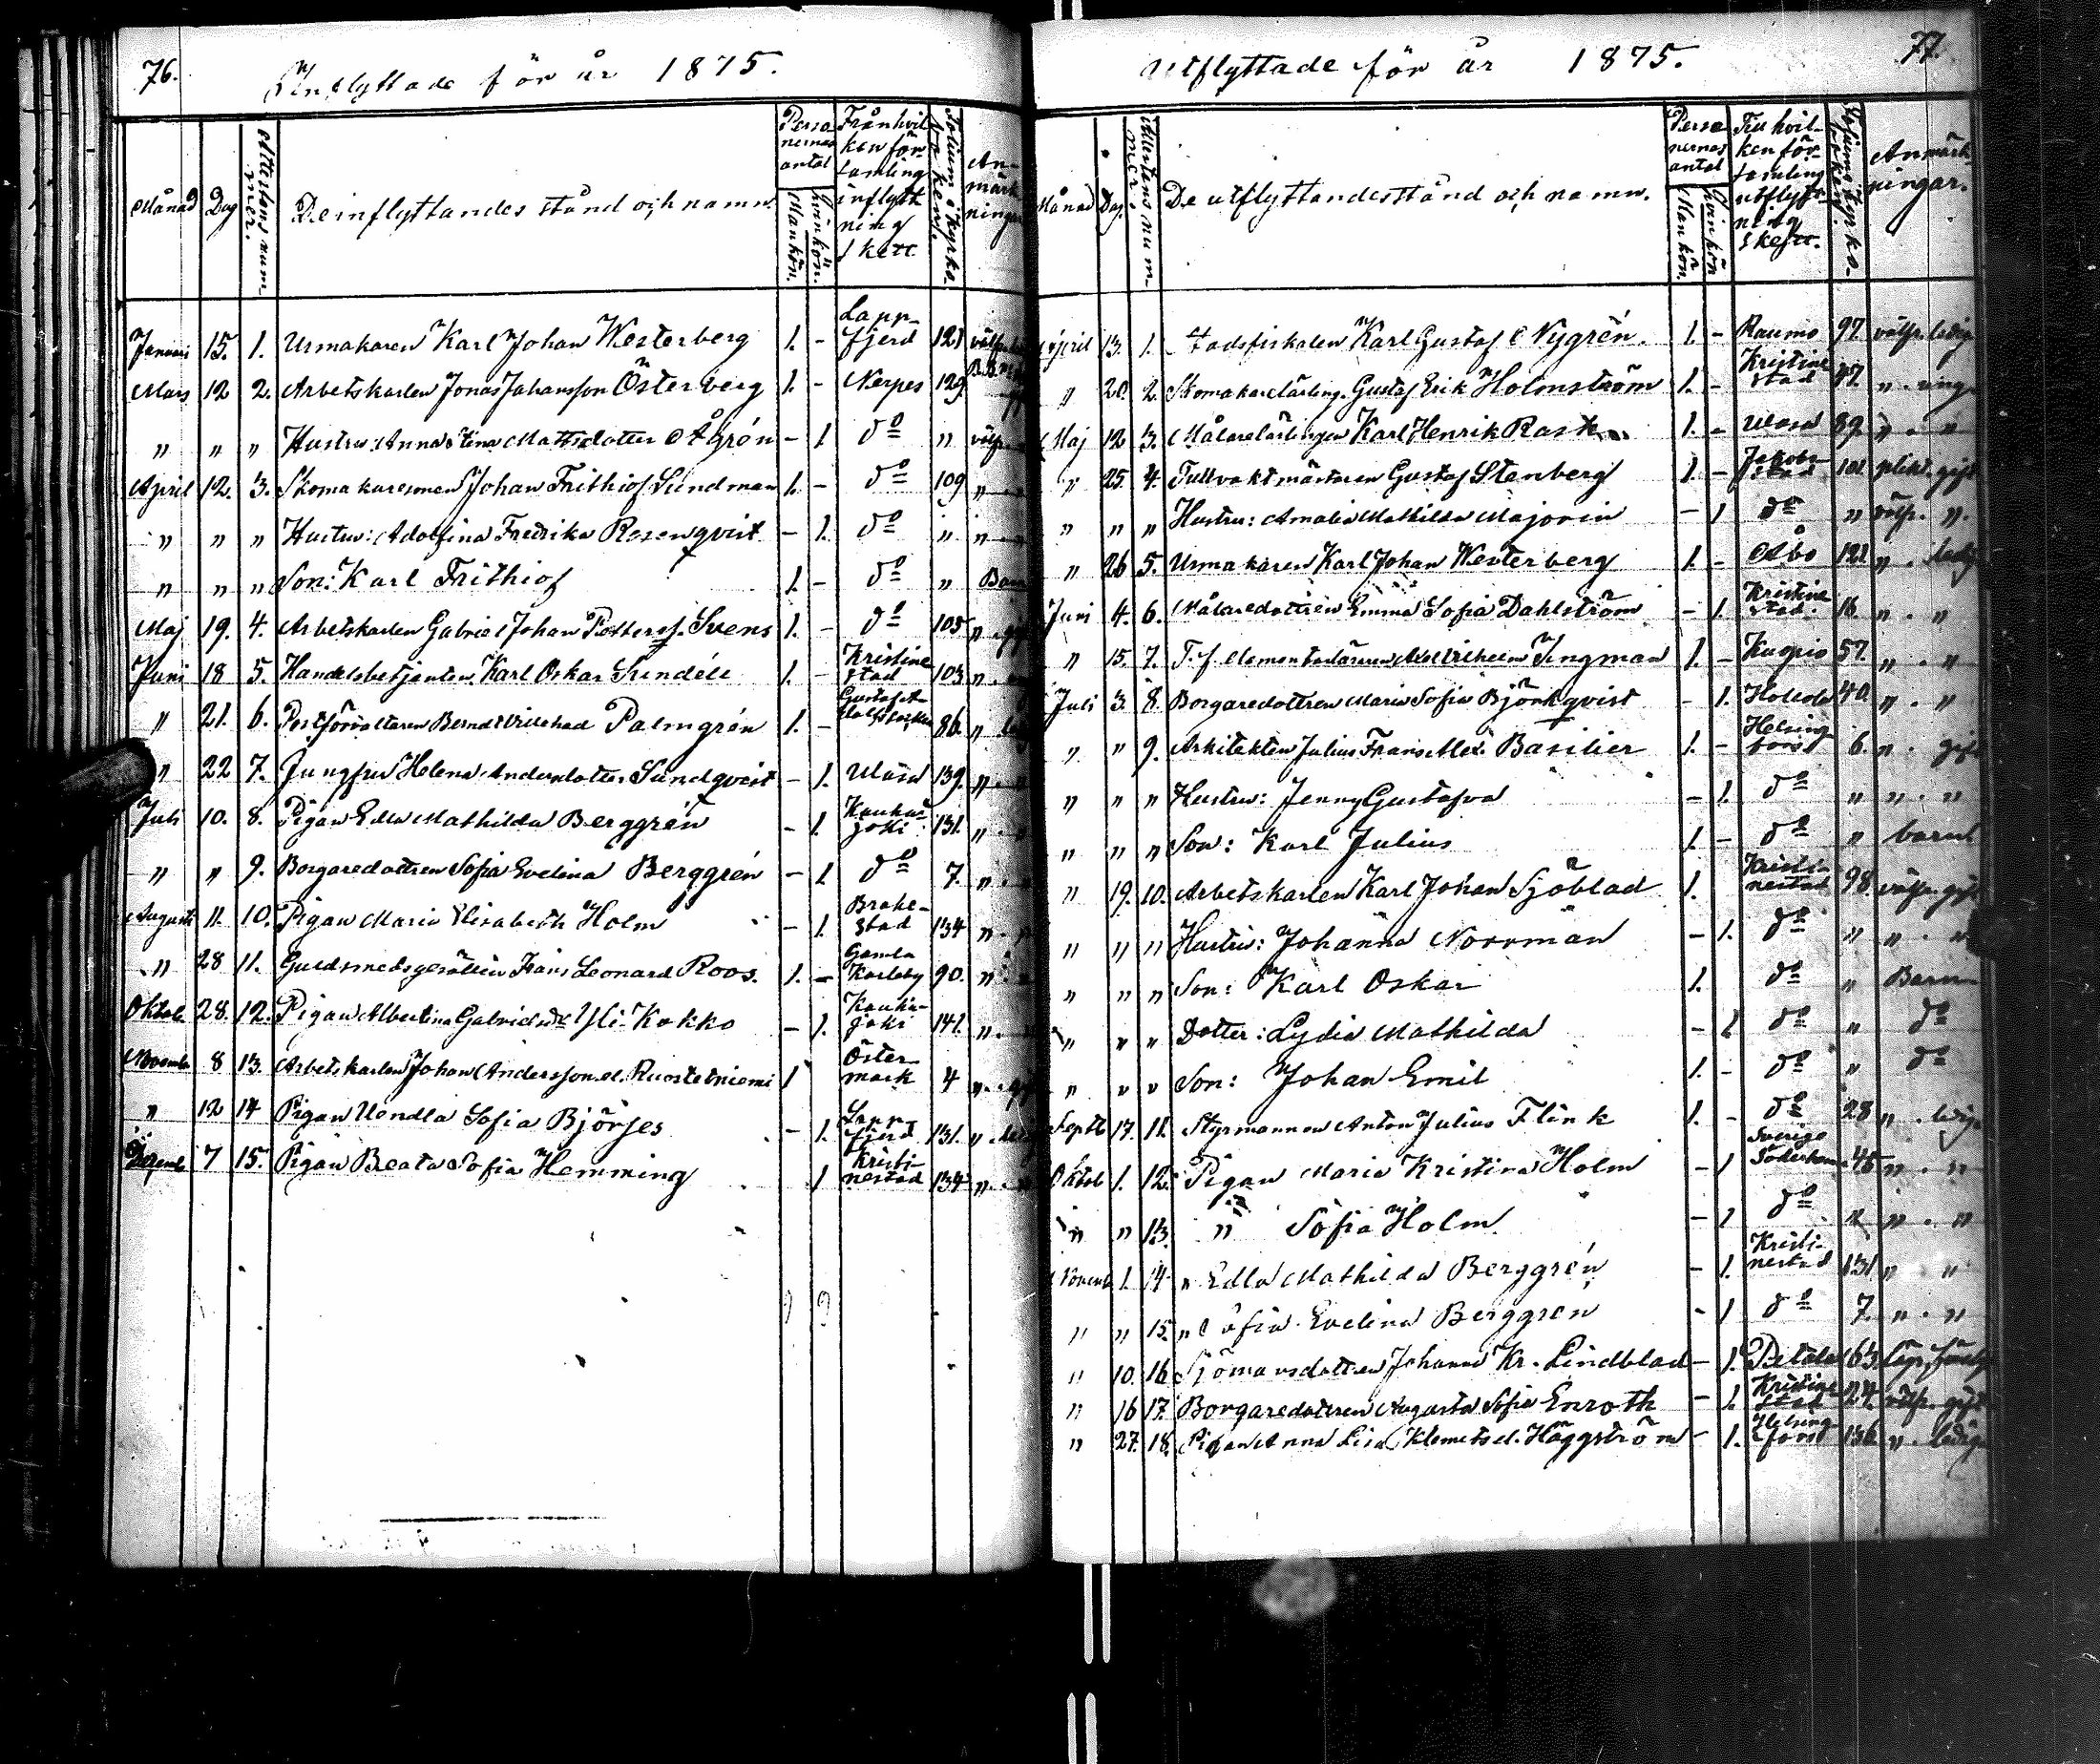 76.
Inflyttade för år 1875.
Månad Dag Attestens num-mer. De inflyttandes stånd och namn. Perso nernas antal Mankön. Qvinkön. Från hvil ken för samling inflytt ning skett. Folium i kyrko- boken. An- märk ningar
Januari 15. 1. Urmakaren Karl Johan Westerberg 1. - Lapp- fjerd 121
Mars 12 2. Arbetskarlen Jonas Johansson Österberg 1. - Nerpes 129.
" " " Hustru: Anna Stina Mattsdotter Ågrén - 1 do " välfr.
April 12. 3. Skomakaresonen Johan Frithiof Sundman 1. - do 109 "
" " " Hustru: Adolfina Fredrika Rosenqvist - 1. do " "
" " " Son: Karl Frithiof 1. - do " Barn
Maj 19. 4. Arbetskarlen Gabriel Johan Petterss. Svens 1. - do 105 "
Juni 18 5. Handelsbetjenten Karl Oskar Sundéll 1. - Kristine stad 103 "
" 21. 6. Postförvaltaren Berndt Villehad Palmgrén 1. - Gustaf A- 86. "
" 22 7. Jungfru Helena Andersdotter Sundqvist - 1. Wasa 139. "
Juli 10. 8. Pigan Edla Mathilda Berggrén - 1. Kauha- joki 131. "
" " 9. Borgaredottren Sofia Evelina Berggrén - 1 do 7. "
Augusti 11. 10. Pigan Maria Elisabeth Holm - 1. Brahe- stad 134 "
" 28 11. Guldsmedsgesällen Frans Leonard Roos. 1. - Gamla Karleby 90. "
Oktob 28. 12. Pigan Albertina Gabrielsdr Yli-Kokko - 1. Kauha- joki 141. "
Novemb 8 13. Arbetskarlen Johan Andersson el. Ruostetniemi 1 Öster mark 4 "
" 12 14 Pigan Wendla Sofia Björses - 1. Lapp fjerd 131. "
Decemb 7 15. Pigan Beata Sofia Hemming 1 Kristi- nestad 134 "
77.
Utflyttade för år 1875.
Månad Dag. Attestens num mer. De utflyttandes stånd och namn. Perso nernas antal Mankön. Qvinkön Till hvil- ken för- samling utflytt- ning skett. Folium i kyrko- boken. Anmärk ningar.
April 13. 1. Stadsfiskalen Karl Gustaf Nygrén. 1. - Raumo 97. välfr. ledig
" 20. 2. Skomakarelärling. Gustaf Erik Holmström 1. - Kristine stad 47. "
Maj 12 3. Målarelärlingen Karl Henrik Rask 1. - Wasa 89. " "
" 25. 4. Tullvaktmästaren Gustaf Stenberg 1. - Jakob- stad 101 gift
" " " Hustru: Amalia Mathilda Majorin - 1 do " välfr. ".
" 26 5. Urmakaren Karl Johan Westerberg 1. - Åbo 121 " ledig
Juni 4. 6. Målaredottren Emma Sofia Dahlström - 1. Kristine stad. 16. " . "
" 15. 7. T.f. Wilhelm Ingman 1. - Kuopio 57. " . "
Juli 3. 8. Borgaredottren Maria Sofia Björkqvist - 1. Hollola 40. " . "
" " 9. Arkitekten Julius Frans Alex. Basilier 1. - Helsing fors 6. " . gift
" " " Hustru: Jenny Gustafva - 1. do " " . "
" " " Son: Karl Julius 1. - do " barn
" 19. 10. Arbetskarlen Karl Johan Sjöblad 1. Kristi- nestad 98. välfr. gift
" " " Hustru: Johanna Norrman - 1. do " " . "
" " " Son: Karl Oskar 1. do " Barn
" " " Dotter: Lydia Mathilda - 1 do " do
" " " Son: Johan Emil 1. - do " do
Septb 17. 11. Styrmannen Anton Julius Flink 1. - do 28 " . ledig
Oktob 1. 12. Pigan Maria Kristina Holm - 1 Sverige Söderhamn 45 " . "
" " 13. " Sofia Holm. - 1 do " " . "
Novemb 1. 14. " Edla Mathilda Berggrén - 1. Kristi- nestad 131 " "
" " 15. " Sofia Evelina Berggrén - 1 do 7. " . "
" 10. 16 Sjömansdottren Johanna Kr. Lindblad - 1. 63.
" 16 17. Borgaredottren Augusta Sofia Enroth - 1. Kristine stad 24. välfr. gift
" 27. 18. Pigan Anna Lisa Klemets el. Häggström - 1. Helsing- fors 136 " . ledig